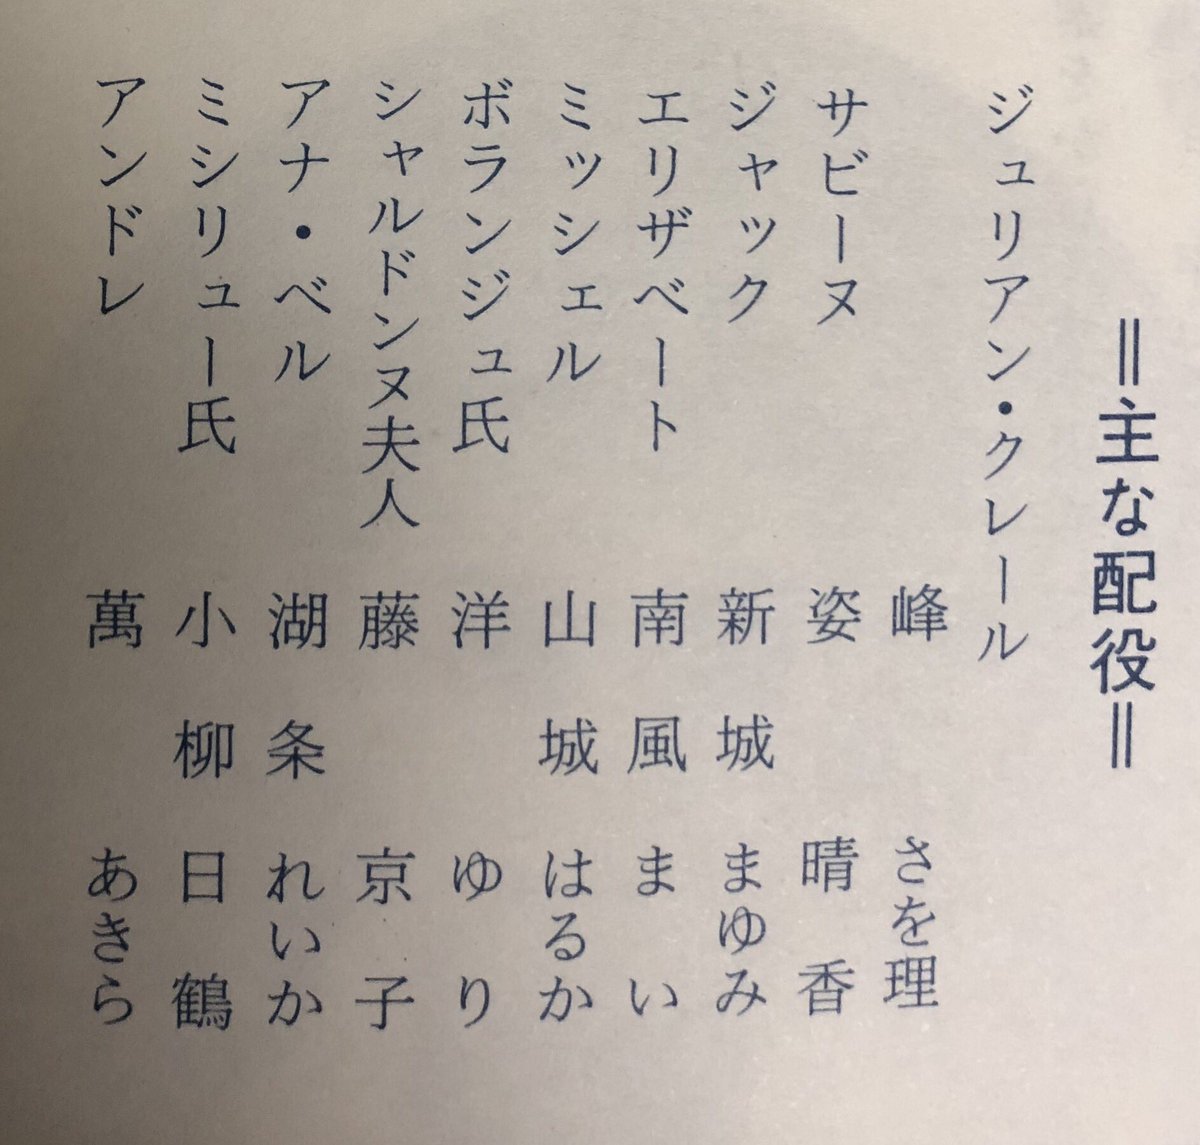 ＝主な配役＝
ジュリアン・クレール
峰 さを理
サビーヌ 姿 晴香
ジャック 新城 まゆみ
エリザベート 南風 まい
ミッシェル 山城 はるか
ボランジュ氏 洋 ゆり
シャルドンヌ夫人 藤 京子
アナ・ベル 湖条 れいか
ミシリュー氏 小柳 日鶴
アンドレ 萬 あきら